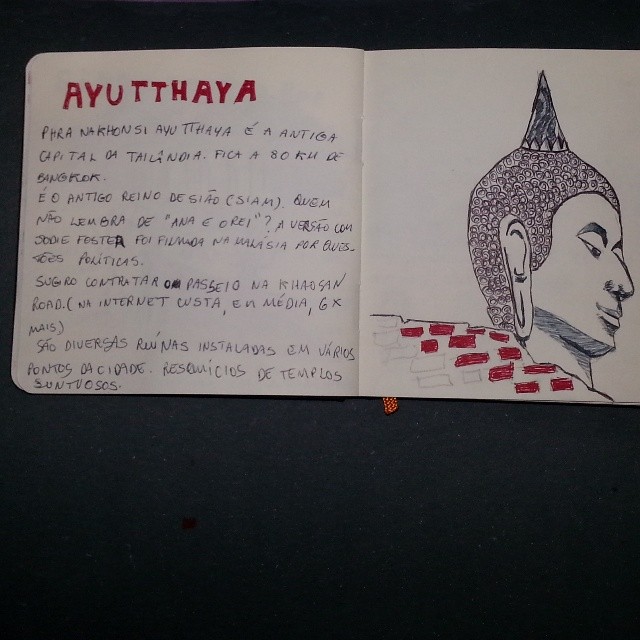 AYUTTHAYA
PHRA NAKHONSI AYUTTHAYA É A ANTIGA
CAPITAL DA TAILÂNDIA. FICA A 80 KM DE
BANGKOK.
É O ANTIGO REINO DE SIÃO (SIAM). QUEM
NÃO LEMBRA DE "ANA E O REI"? A VERSÃO COM
JODIE FOSTER FOI FILMADA NA MALÁSIA POR QUES-
TÕES POLÍTICAS.
SUGIRO CONTRATAR O PASSEIO NA KHAOSAN
ROAD. (NA INTERNET CUSTA, EM MÉDIA, 6X
MAIS)
SÃO DIVERSAS RUÍNAS INSTALADAS EM VÁRIOS
PONTOS DA CIDADE. RESQUÍCIOS DE TEMPLOS
SUNTUOSOS.